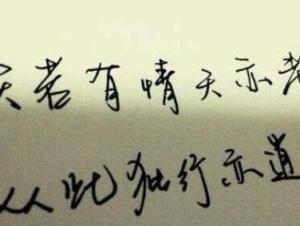 天若有情天亦老
从此独行亦道